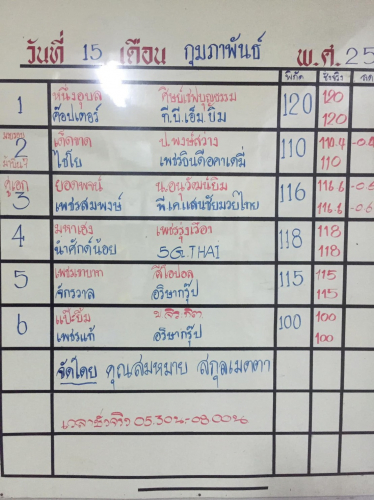 วันที่ 15 เดือน กุมภาพันธ์ พ.ศ. 25
พิกัด ชั่งจริง
1 หนึ่งอุบล ศิษย์เชฟบุญธรรม 120 120
ค๊อปเตอร์ ที.บี.เอ็ม.ยิม 120
2 เด็ดขาด ป.พงษ์สว่าง 110 110.4 -0.4
ไชโย เพชรยินดีอคาเดมี่ 110
คู่เอก
3 ยอดพจน์ น.อนุวัฒน์ยิม 116 116.6 -0.6
เพชรสมพงษ์ พี.เค.แสนชัยมวยไทย 116.6 -0.6
4 มหาเฮง เพชรรุ่งเรือง 118 118
นำศักดิ์น้อย 5G.THAI 118
5 สีโอปอล 115 115
จักรวาล อริษากรุ๊ป 115
6 แป๊ะยิ้ม 100 100
เพชรแท้ อริษากรุ๊ป 100
จัดโดย คุณสมหมาย สกุลเมตตา
เวลาชั่งจริง 05.30น-08.00น